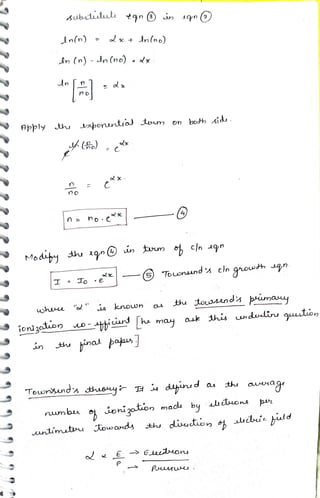 Substitute eqn ③ in eqn ②
ln(n) = αx + ln(no)
ln(n) - ln(no) = αx
ln [n/no] = αx
Apply the exponential term on both side.
e^ln(n/no) = e^αx
n/no = e^αx
n = no.e^αx — ④
Modify the eqn ④ in term of c/n eqn
I = Io.e^αx — ⑤ Townsend's c/n growth eqn.
where "α" is known as the townsend's primary
ionization co-efficient [he may ask this underline question
in the final paper]
Townsend's theory:- It is defined as the average
number of ionization made by electrons per
centimetre towards the direction of electric field
α ∝ E/P → Electrons
→ Pressure.